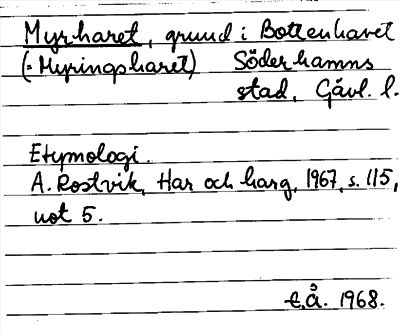 Myrharet, grund i Bottenhavet
(= Myringsharet) Söderhamns
stad, Gävl. l.
Etymologi.
A. Rostvik, Har och harg, 1967, s. 115,
not 5.
E.Å. 1968.